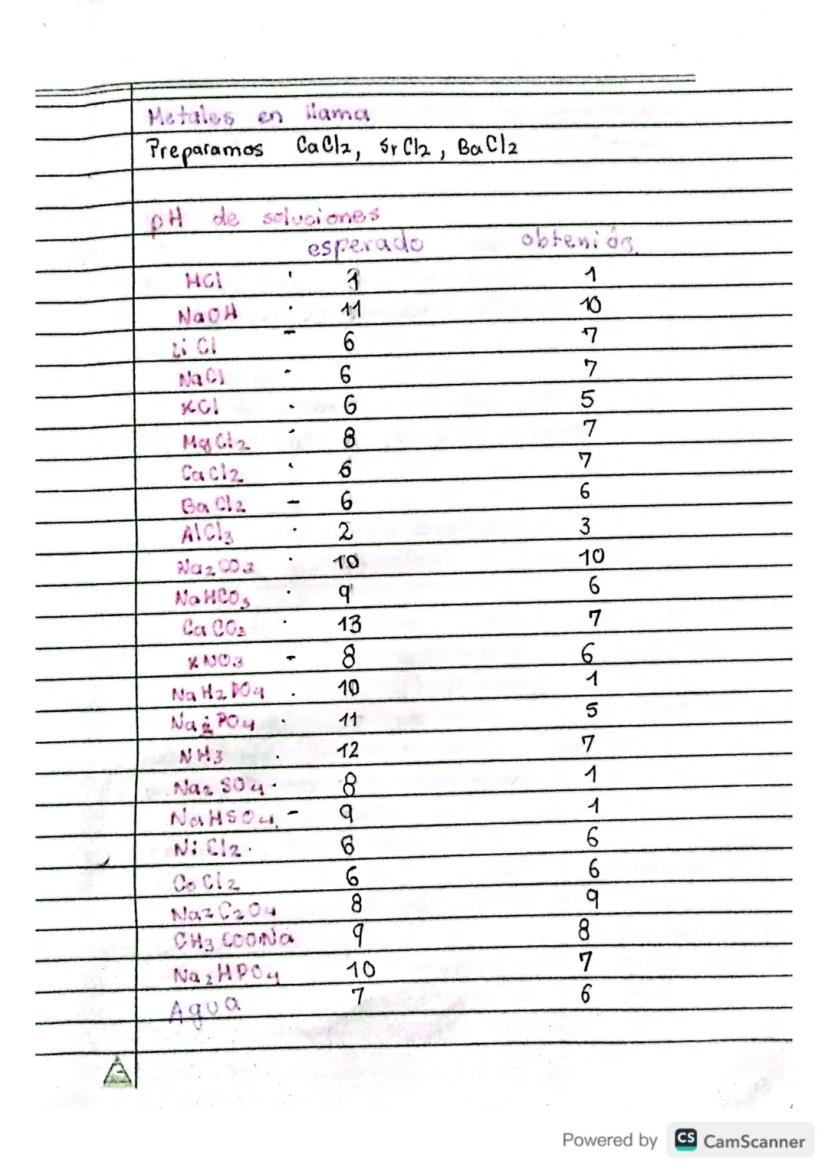 Metales en llama
Preparamos CaCl2, SrCl2, BaCl2
pH de soluciones
esperado obtenido
HCl 1 1
NaOH 11 10
LiCl - 6 7
NaCl - 6 7
KCl 6 5
MgCl2 8 7
CaCl2 6 7
BaCl2 - 6 6
AlCl3 2 3
Na2CO3 10 10
NaHCO3 9 6
CaCO3 13 7
KNO3 - 8 6
NaH2PO4 . 10 1
PO4 11 5
NH3 . 12 7
Na2SO4 . 8 1
NaHSO4 - 9 1
NiCl2 . 6 6
CoCl2 6 6
Na2C2O4 8 9
CH3COONa 9 8
Na2HPO4 10 7
Agua 7 6
Powered by CS CamScanner